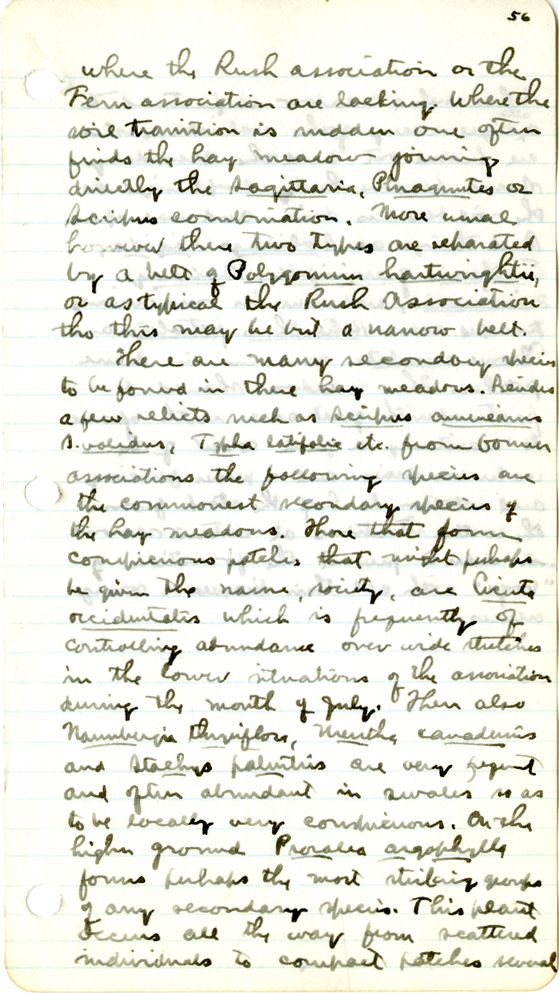 56
where the Rush association or the
Fern association are lacking. Where the
soil transition is sudden one often
finds the hay meadow joining
directly the Sagittaria, Phragmites or
Scirpus combination. More usual
however these two types are separated
by a belt of Polygonum hartwrightii,
or as typical the Rush Association
tho this may be but a narrow belt.
There are many secondary species
to be found in these hay meadows. Besides
a few relicts such as Scirpus americanus
S. validus, Typha latifolia etc. from former
associations the following species are
the commonest secondary species of
the hay meadows. Those that form
conspicuous patches that might perhaps
be given the name, society, are Cicuta
occidentales which is frequently of
controlling abundance over wide stretches
in the lower situations of the association
during the month of July. Then also
Naumbergia thrysiflora, Mentha canadensis
and Stachys palustris are very frequent
and often abundant in swales so as
to be locally very conspicuous. On the
higher ground Psoralea argophylla
forms perhaps the most striking groups
of any secondary species. This plant
occurs all the way from scattered
individuals to compact patches several